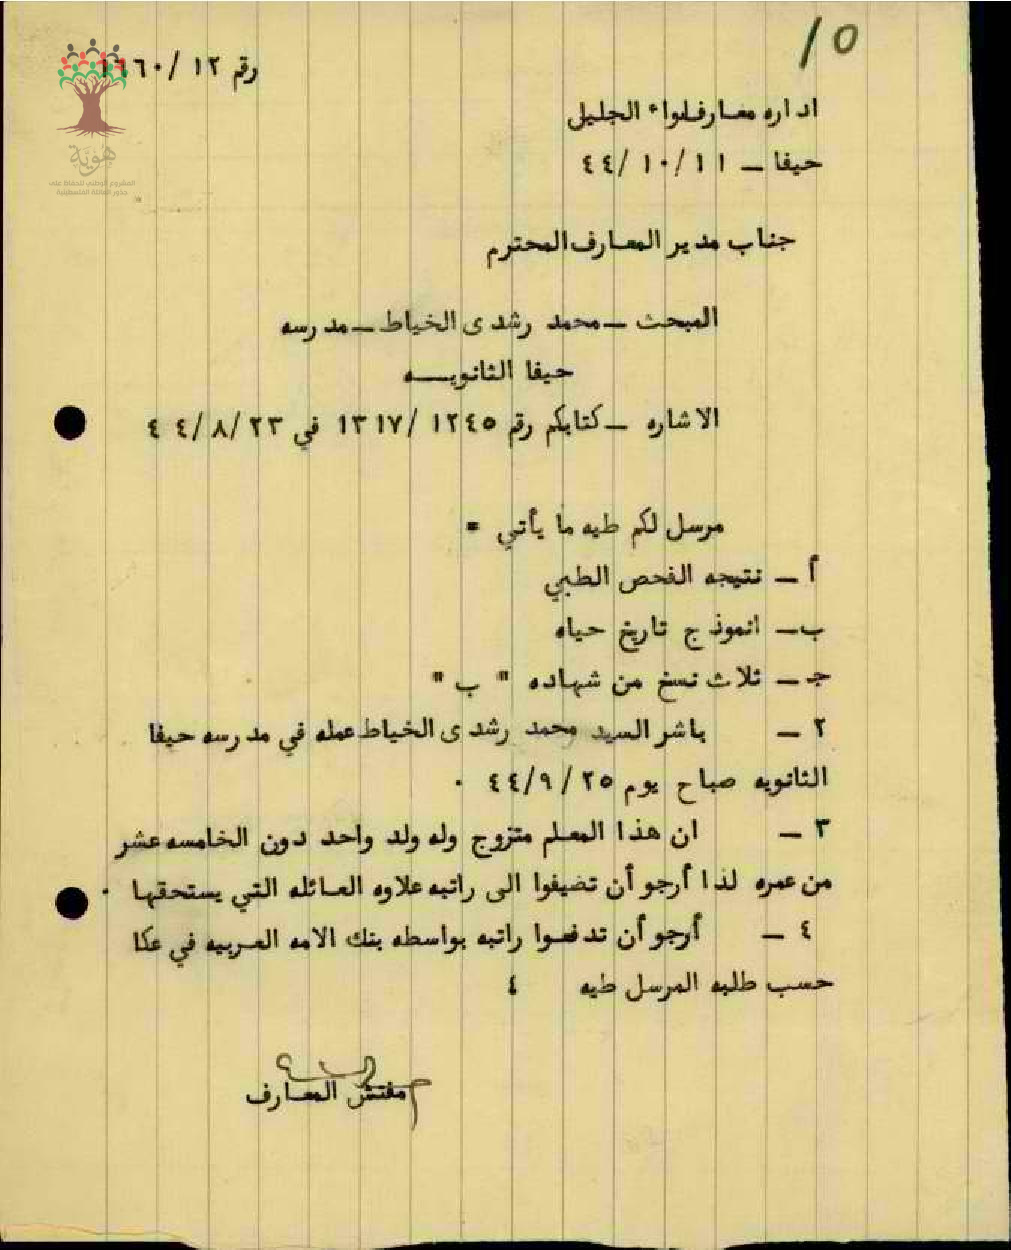 ١٥
رقم ١٢ /١٦٦٠
هوية
المشروع الوطني للحفاظ على
جذور العائلة الفلسطينية
اداره معارف لواء الجليل
حيفا ــ ١١ /١٠ /٤٤
جناب مدير المعارف المحترم
المبحث ــ محمد رشدى الخياط ــ مدرسه
حيفا الثانويــه
الاشاره ــ كتابكم رقم ١٢٤٥ /١٣١٧ في ٢٣ /٨ /٤٤
مرسل لكم طيه ما يأتي =
أ ــ نتيجه الفحص الطبي
ب ــ انموذج تاريخ حياه
جـ ــ ثلاث نسخ من شهاده " ب "
٢ ــ باشر السيد محمد رشدى الخياط عمله في مدرسه حيفا
الثانويه صباح يوم ٢٥ /٩ /٤٤ ٠
٣ ــ ان هذا المعلم متزوج وله ولد واحد دون الخامسه عشر
من عمره لذا أرجو أن تضيفوا الى راتبه علاوه العائله التي يستحقها ٠
٤ ــ أرجو أن تدفعوا راتبه بواسطه بنك الامه العربيه في عكا
حسب طلبه المرسل طيه ٤
مفتش المعارف